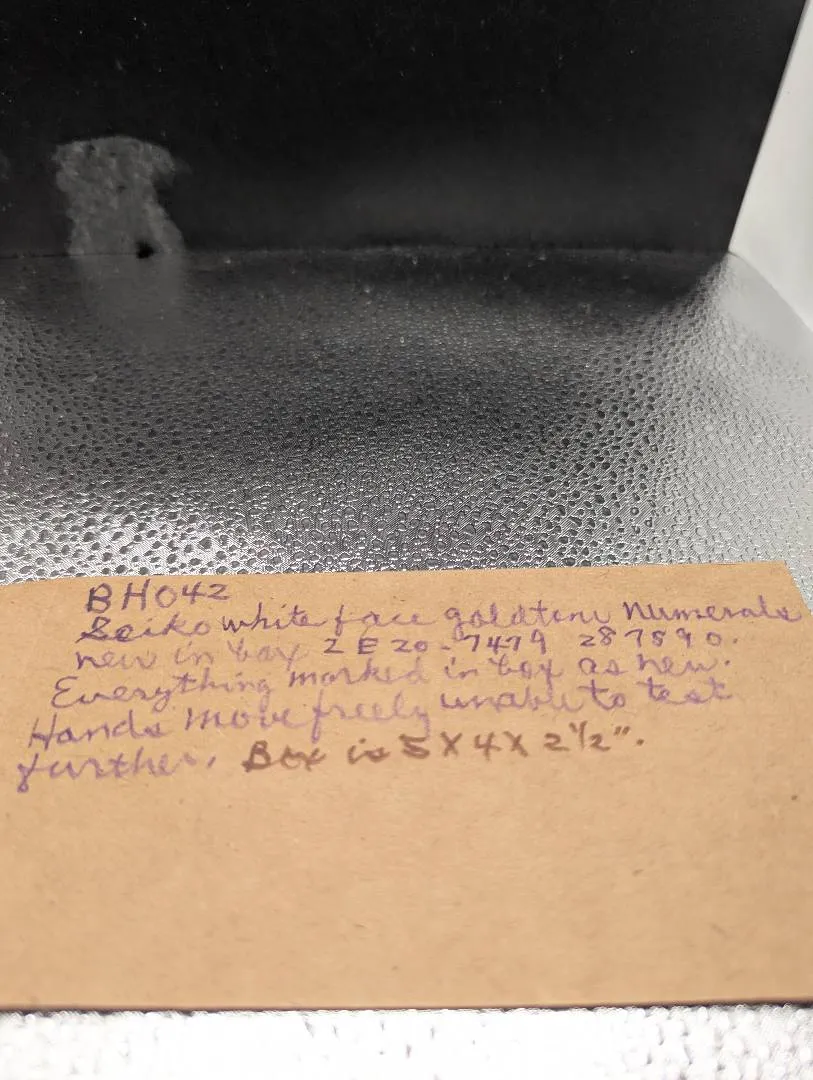 BH042
Seiko white face goldtone Numerals
new in box 2E20-7479 287890.
Everything marked in box as new.
Hands move freely unable to test
further. Box is 5X4X2½".